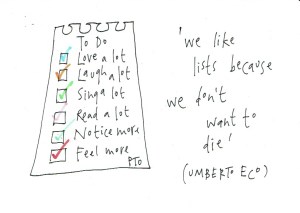 To Do
Love a lot
Laugh a lot
Sing a lot
Read a lot
Notice more
Feel more
PTO
'we like
lists because
we don't
want to
die'
(UMBERTO ECO)